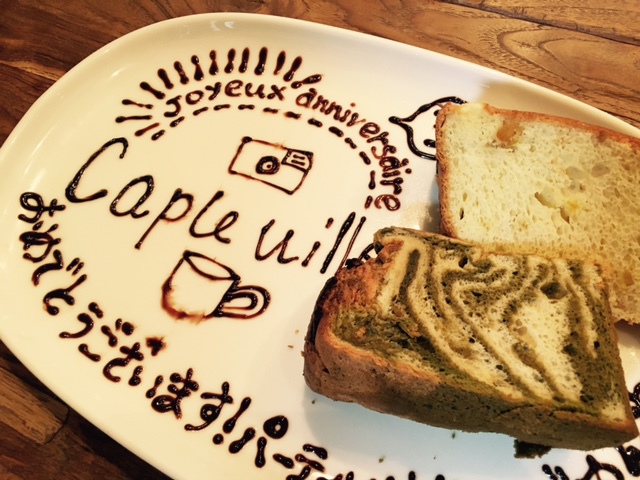 Joyeux anniversaire
Capleuill
おめでとうございます!パーティ